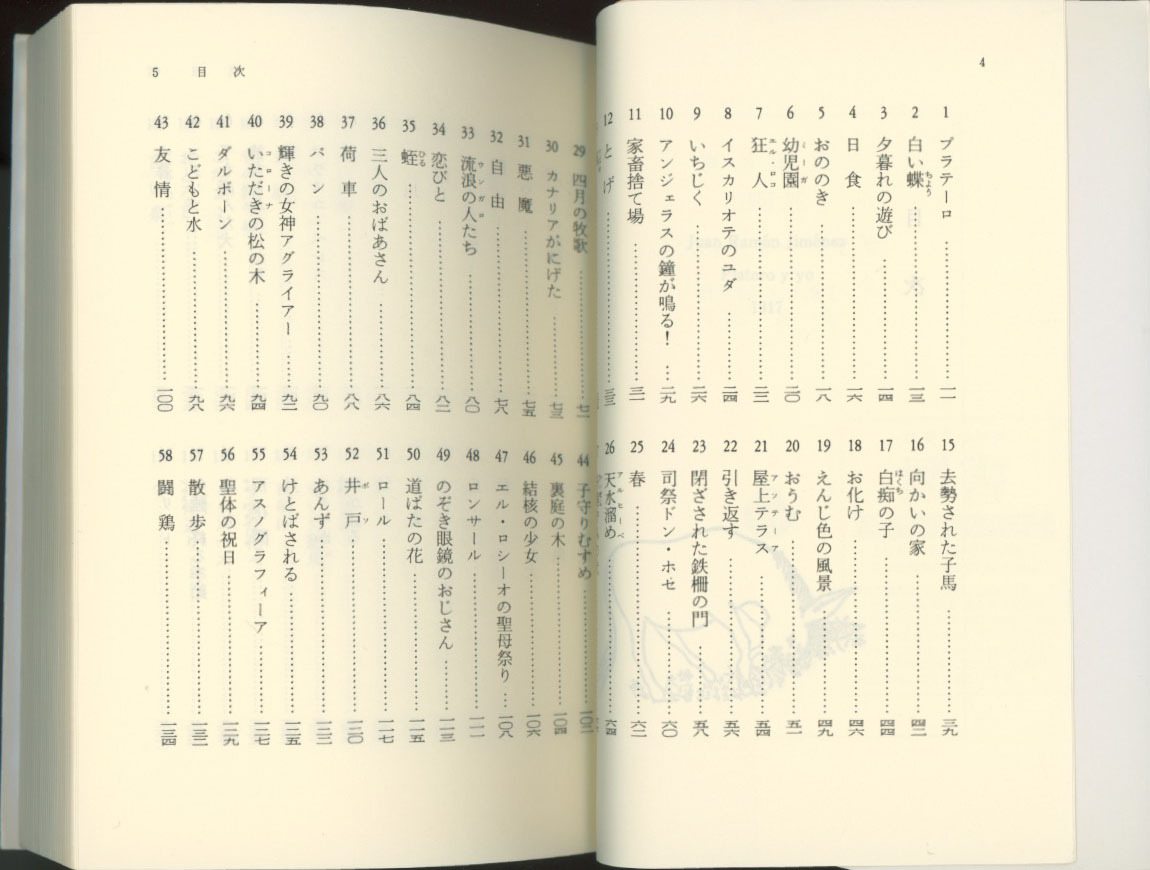 4
1 プラテーロ……一一
2 白い蝶……一三
ちよう
3 夕暮れの遊び……一四
4 日食……一六
5 おののき……一八
6 幼児園……二〇
ミーガ
7 狂人……二三
エル・ロコ
8 イスカリオテのユダ……二四
9 いちじく……二六
10 アンジェラスの鐘が鳴る!……二九
11 家畜捨て場……三一
12 とげ……三三
15 去勢された子馬……三九
16 向かいの家……四二
17 白痴の子……四四
はくち
18 お化け……四六
19 えんじ色の風景……四九
20 おうむ……五一
21 屋上テラス……五四
アソテーア
22 引き返す……五六
23 閉ざされた鉄柵の門……五八
24 司祭ドン・ホセ……六〇
25 春……六二
26 天水溜め……六四
アルヒーベ
5 目次
29 四月の牧歌……七一
30 カナリアがにげた……七三
31 悪魔……七五
32 自由……七八
33 流浪の人たち……八〇
ウンガロ
34 恋びと……八二
35 蛭……八四
ひる
36 三人のおばあさん……八六
37 荷車……八八
38 パン……九〇
39 輝きの女神アグライアー……九二
40 いただきの松の木……九四
コローナ
41 ダルボーン……九六
42 こどもと水……九八
43 友情……一〇〇
44 子守りむすめ……一〇二
45 裏庭の木……一〇四
46 結核の少女……一〇六
47 エル・ロシーオの聖母祭り……一〇八
48 ロンサール……一一一
49 のぞき眼鏡のおじさん……一一三
50 道ばたの花……一一五
51 ロール……一一七
52 井戸……一二〇
ポソ
53 あんず……一二三
54 けとばされる……一二五
55 アスノグラフィーア……一二七
56 聖体の祝日……一二九
57 散歩……一三二
58 闘鶏……一三四